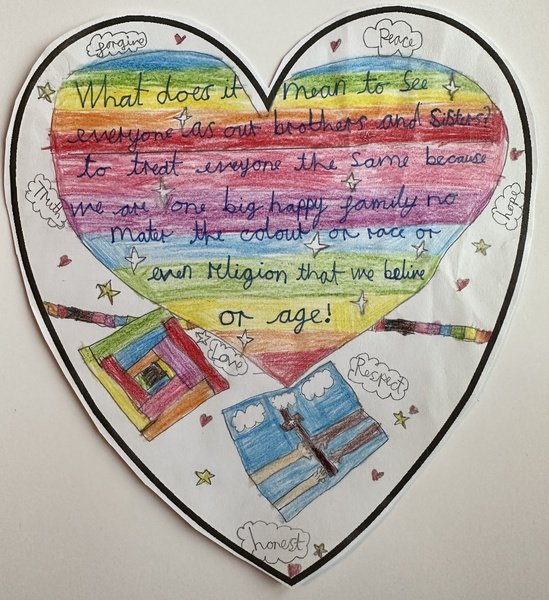 forgive
Peace
What does it mean to see
everyone as our brothers and sisters?
to treat everyone the same because
we are one big happy family no
mater the colour or race or
even religion that we belive
or age!
hope
Love
Respect
honest